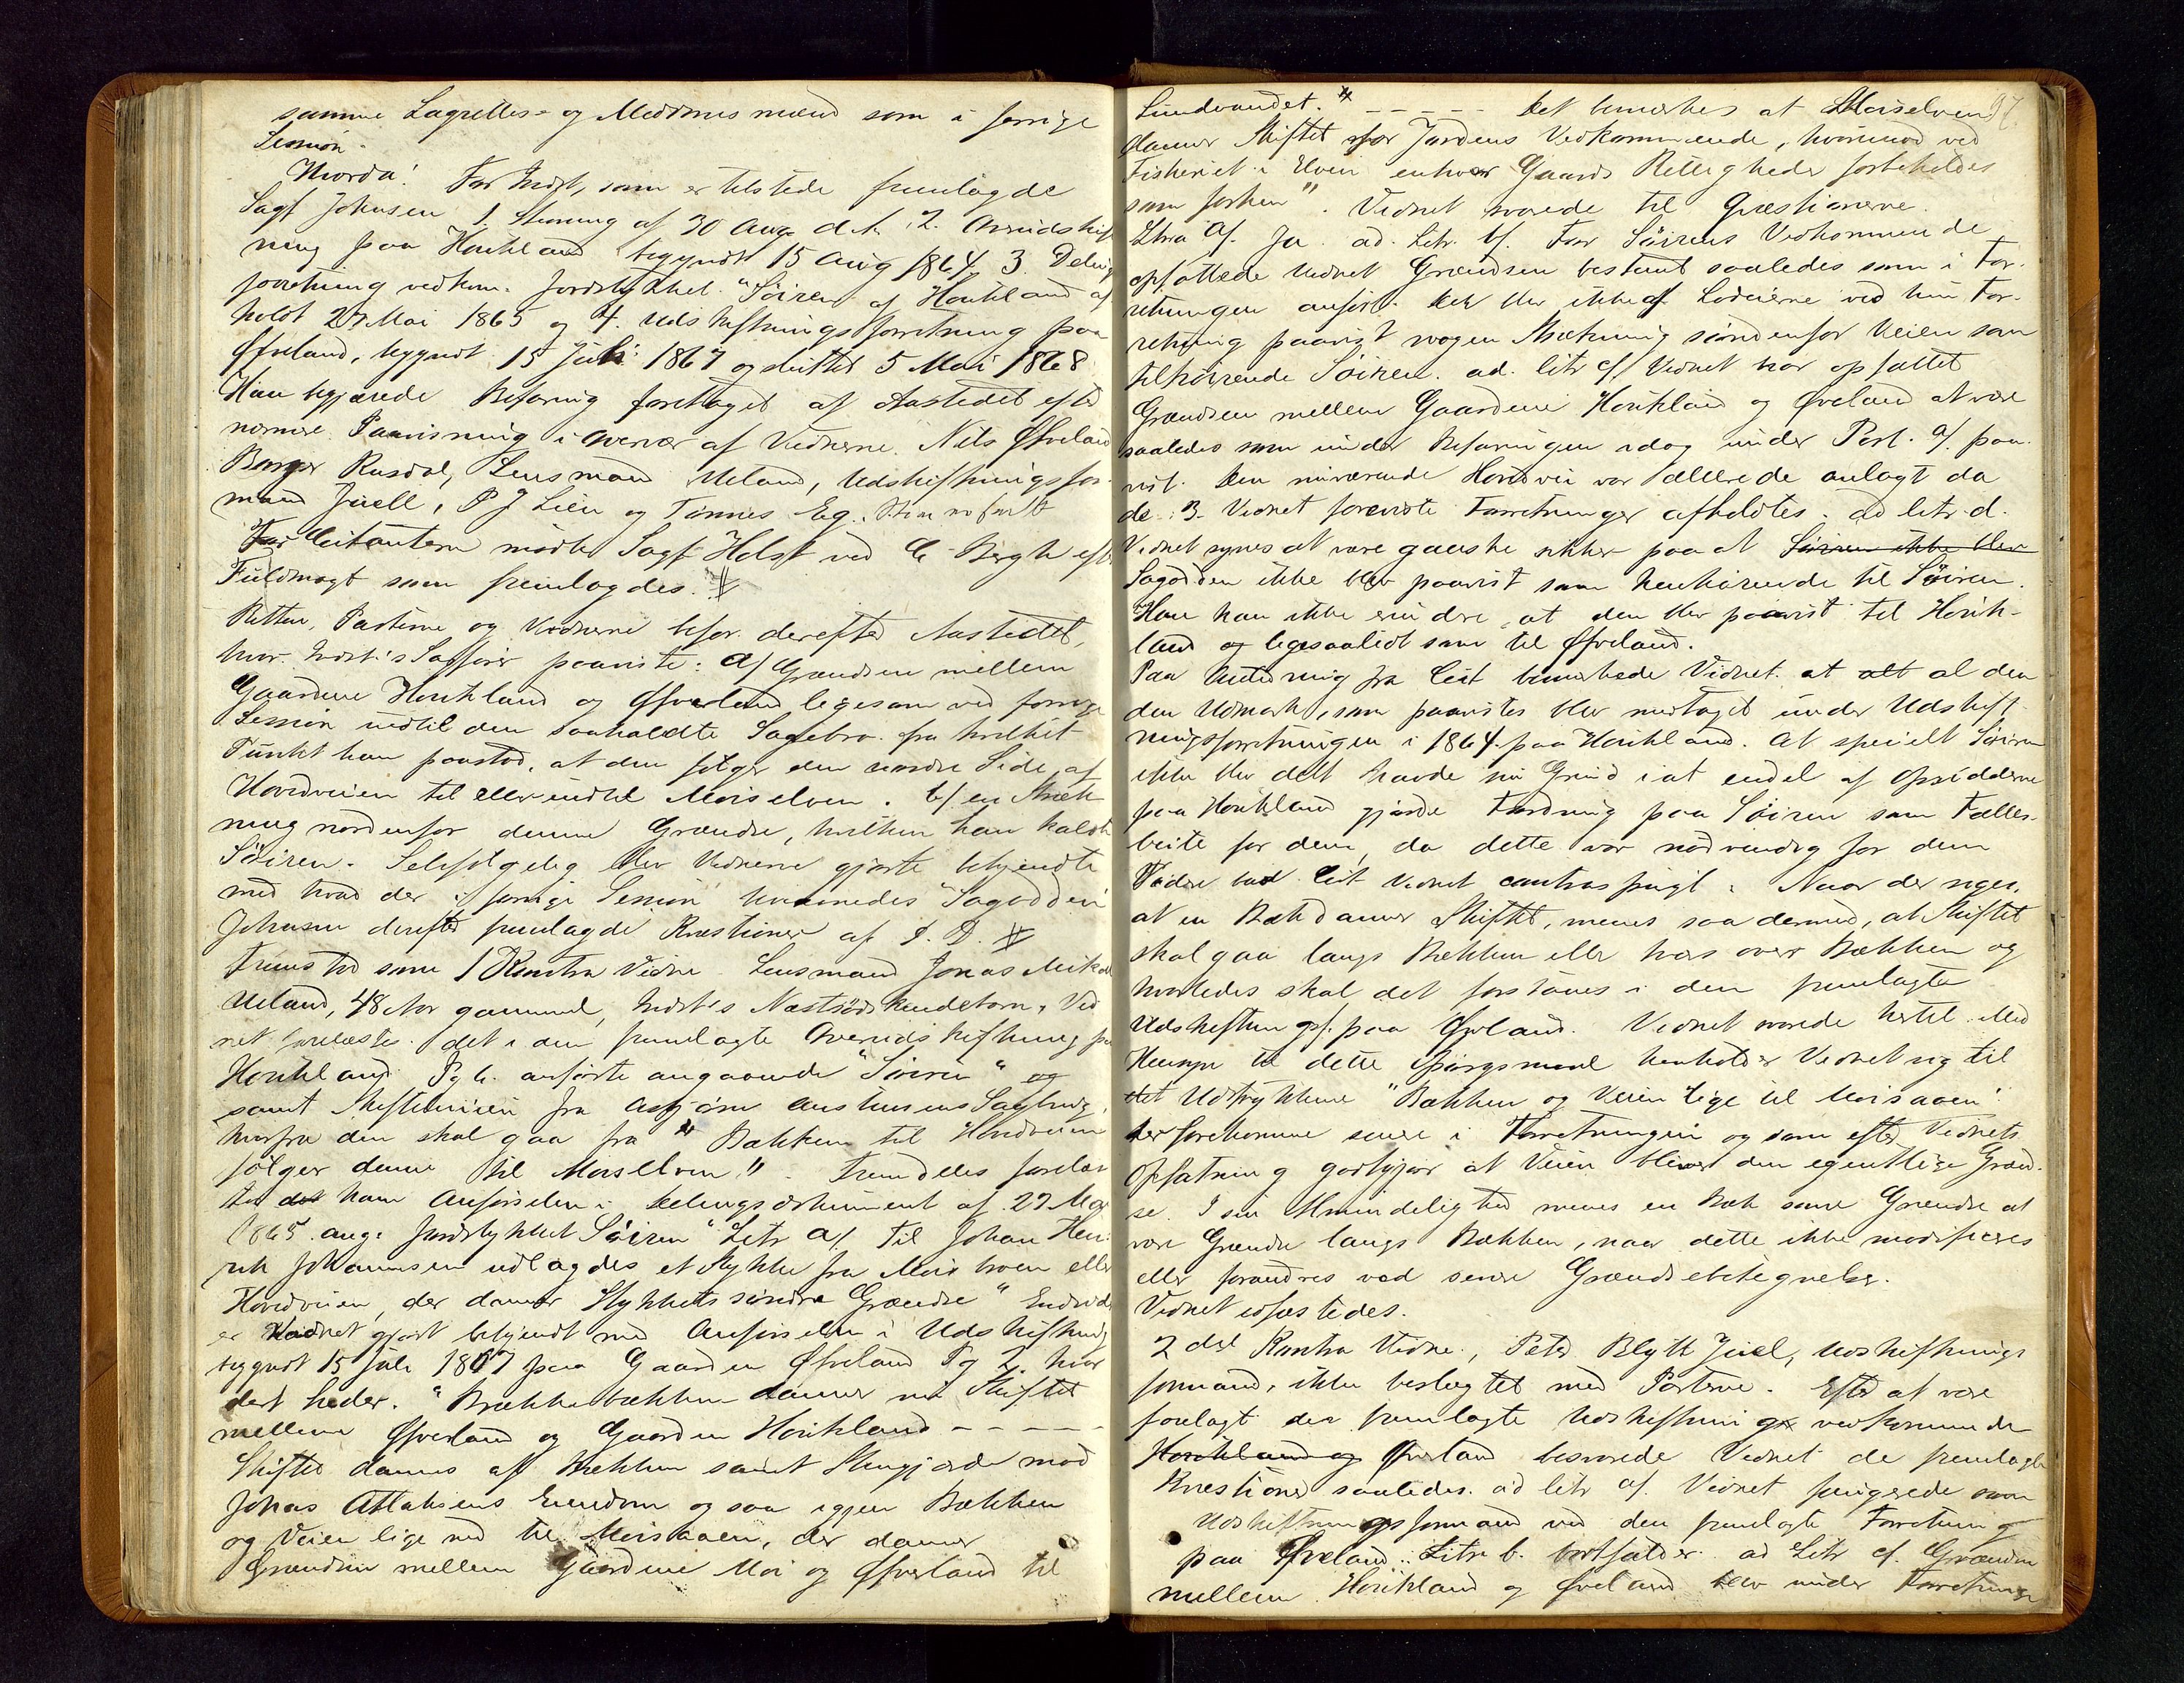 samme Lagrettes- og Meddomsmænd som i forrige
Session.
Hvorda! For Indst, som er tilstede fremlagde
Sagf Johnsen 1. Stevning af 30 Aug d. A. 2.
ning paa Houkland begyndt 15 Aug 1864, 3. Delings
forretning vedkom. Jordstykket "Söiren" af Houkland af
holdt 27 Mai 1865 og 4. Udskiftningsforretning paa
Øfveland, begyndt 15 Juli 1867 og sluttet 5 Mai 1868
Han begjærede Befaring foretaget af Aastedet efter
nærmere Paavisning i Overvær af Vidnerne Nils Øfveland
Berger Rusdal, Lensmand Ueland, Udskiftningsfor-
mand Juell, P J Lien og Tönnes Eg.
For Citantern mödte Sagf Holst ved C Bergh efter
Fuldmagt som fremlagdes.
Retten, Parterne og Vidnerne befor derefter Aastedet,
hvor Indst's Sagförer paaviste: a/ Grændsen mellem
Gaardene Houkland og Øfverland ligesom ved forrige
Session indtil den saakaldte Sagebro fra hvilket
Punkt han paastod, at den fölger den nordre Side af
Hovedveien til eller indtil Moiselven. b/ en Stræk
ning nordenfor denne Grændse, hvilken han kaldte
Söiren. Selvfölgelig blev Vidnerne gjorte bekjendte
med hvad der i forrige Session benævnedes "Sagodden"
Johnsen derefter fremlagde Kvæstioner af D. D.
Fremstod som 1 Kontra Vidne Lensmand Jonas
Ueland, 48 Aar gammel, Indst's Næstsödskendebarn, Vid
net forelæstes det i den fremlagte Overudskiftning paa
Houkland Pg 6. anförte angaaende "Söiren" og
samt Skiftelinien fra Asbjörn Austensens Sagbrug,
hvorfra den skal gaa fra "Bækken til Hovedveien
fölger denne til Moiselven". Fremdeles forelæs
tes det ham Anförselen i Delingsdokument af 27 Mai
1865 ang. Jordstykket Söiren "Letr a/ Til Johan Hen-
rik Johannesen udlagdes et Stykke fra Moisbroen eller
Hovedveien, der danner Stykkets söndre Grændse" Endvidere
er Vidnet gjort bekjendt med Anförselen i Udskiftning
begyndt 15 Juli 1867 paa Gaarden Øfveland Pg 2. hvor
det heder. "Brækkebækken danner nu Skiftet
mellem Øfverland og Gaarden Houkland - - - -
Skiftet dannes af Bækken samt Stengjærde mod
Jonas Atlaksens Eiendom og saa igjen Bækken
og Veien lige ned til Moisaaen, der danner
Grændsen mellem Gaardene Moi og Øfverland til
97
Lundevandet. - - - - - Det bemærkes at Moiselven
danner Skiftet for Jordens Vedkommende, hvorimod ved
Fisheriet i Elven enhver Gaards Rettigheder forbeholdes
som forhen". Vidnet svarede til Qvæstionerne.
Litra a/. Ja. ad. Litr. b/. For Söirens Vedkommende
opfattede Vidnet Grændsen bestemt saaledes som i For-
retningen anfört. Der blev ikke af Lodeierne ved hin For-
retning paavist nogen Strækning söndenfor Veien som
tilhörende Söiren. ad. litr c/ Vidnet har opfattet
Grændsen mellem Gaardene Houkland og Øveland at være
saaledes som under Befaringen idag under Post. a/. paa-
vist. Den nuværende Hovedvei var allerede anlagt da
de 3 Vidnet foreviste Forretninger afholdtes. ad litr. d.
Vidnet synes at være ganske sikker paa at Söiren ikke blev
Sagodden ikke blev paavist som henhörende til Söiren.
Han kan ikke erindre at den blev paavist til Houk-
land og ligesaalidt som til Øfveland.
Paa Anledning fra Cit bemærkede Vidnet at alt al den
den Udmark, som paavistes blev medtaget under Udskift-
ningsforretningen i 1864 paa Houkland. At specielt Söiren
ikke blev delt havde sin Grund i at endel af Opsidderne
paa Houkland gjorde Fordring paa Söiren som Fælles-
beite for dem, da dette var nödvendig for dem
Videre lod Cit Vidnet contraspurgt: Naar der siges,
at en Bæk danner Skiftet, menes saa dermed, at Skiftet
skal gaa langs Bækken eller tvers over Bækken og
hvorledes skal det forstaaes i den fremlagte
Udskiftningsf. paa Øfveland. Vidnet svarede hertil. Med
Hensyn til dette Spörgsmaal henholder Vidnet sig til
det Udtrykkene "Bækken og Veien lige til Moisaaen".
der forekomme senere i Forretningen og som efter Vidnets
Opfatning godtgjör at Veien bliver den egentlige Grænd-
se. I sin Almindelighed menes en Bæk som Grændse at
være Grændse langs Bækken, naar dette ikke modificeres
eller forandres ved senere Grændsebetegnelser.
Vidnet edfæstedes.
2det Kontra Vidne, Peter Blytt Juel, Udskiftnings
formand, ikke beslægtet med Parterne. Efter at være
forelagt den fremlagte Udskiftning vedkommende
Houkland og Øfverland besvarede Vidnet de fremlagte
Kvæstioner saaledes. ad litr a/. Vidnet fungerede som
Udskiftningsformand ved den fremlagte Forretning
paa Øfveland. Litr b. bortfalder. ad Litr c/. Grændsen
mellem Houkland og Øveland blev under Forretningen